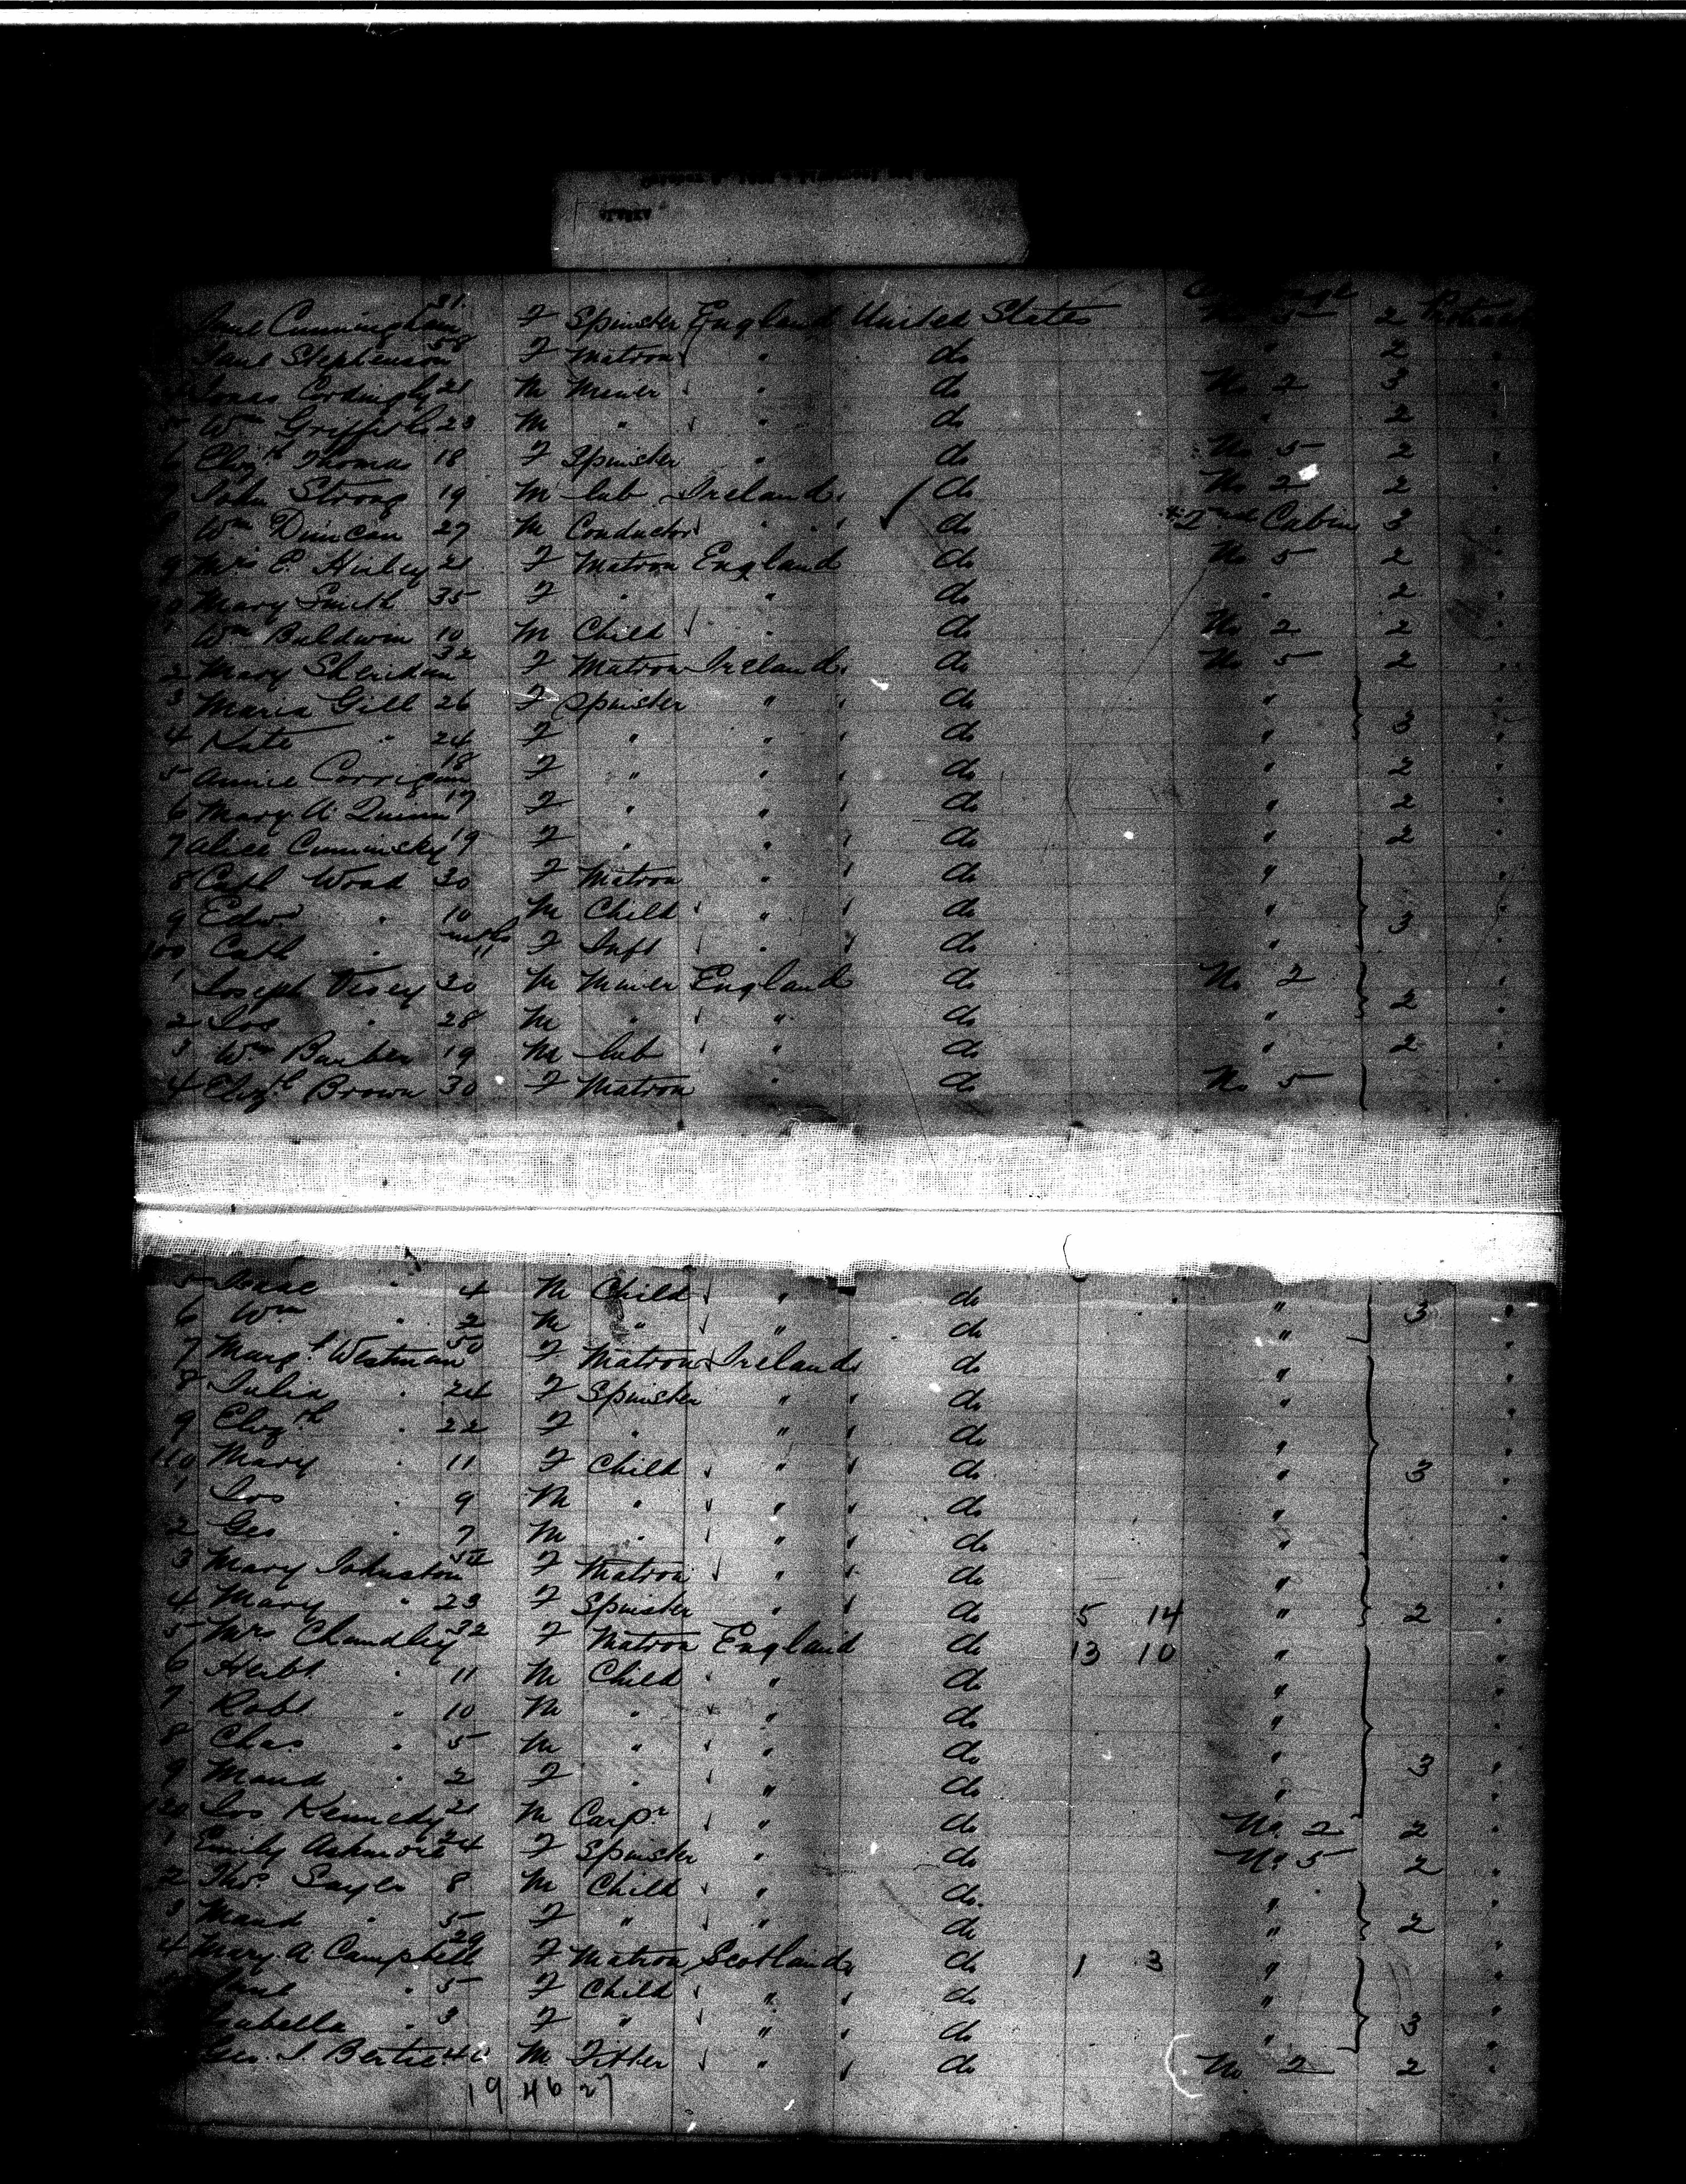 Jane Cunningham 31 F Spinster England United States No 5 2
Jane Stephenson 58 F Matron " do " 2 "
Jones Cordingly 21 M Miner " do No 2 3 "
Wm Griffith 23 M " " do " 2
6 Elizth Thomas 18 F Spinster " do No 5 2 "
7 John Strong 19 M lab Ireland do No 2 2 "
8 Wm Duncan 27 M Conductor " do 2nd Cabin 3
9 Mrs E. 21 F Matron England do No 5 2
Mary Smith 35 F " " do " 2 "
Wm Baldwin 10 M Child " do No 2 2 "
2 Mary Sheridan 32 F Matron Ireland do No 5 2
3 Maria Gill 26 F Spinster " do "
4 Kate " 24 F " " do " 3 "
5 Annie Corrigan 18 F " " do " 2 "
6 Mary A. Quinn 17 F " " do " 2 "
7 Alice 19 F " " do " 2 "
8 Cath Woad 30 F Matron " do "
9 Edw " 10 M Child " do " 3 "
100 Cath " mths 11 F Inft " do " "
1 Joseph Vesey 30 M Miner England do No 2 "
2 Jos " 28 M " " do " 2 "
3 Wm Barber 19 M lab " do " 2 "
4 Elizth Brown 30 F Matron " do No 5 "
5 Isaac " 4 M Child " do " 3 "
6 Wm " 2 M " " do " "
7 Margt Westman 50 F Matron Ireland do " "
8 Julia " 24 F Spinster " do " "
9 Elizth " 22 F " " do " "
110 Mary " 11 F Child " do " 3 "
1 Jos " 9 M " " do " "
2 Geo " 7 M " " do " "
3 Mary Johnston F Matron " do " "
4 Mary " 23 F Spinster " do 5 14 " 2 "
5 Mrs Chandley 32 F Matron England do 13 10 " "
6 Herbt " 11 M Child " do " "
7 Robt " 10 M " " do " "
8 Chas " 5 M " " do " "
9 Maud " 2 F " " do " 3 "
120 Jos Kennedy 21 M Carpr " do No. 2 2 "
1 Emily Ashmore 24 F Spinster " do No 5 2 "
2 Thos Sayes 8 M Child " do. " "
3 Maud " 5 F " " do " 2 "
4 Mary A Campbell 29 F Matron Scotland do 1 3 " "
Jane " 5 F Child " do " "
Isabella " 3 F " " do " 3 "
Geo. J. Bertie M Fitter " do No 2 2 "
19 46 27